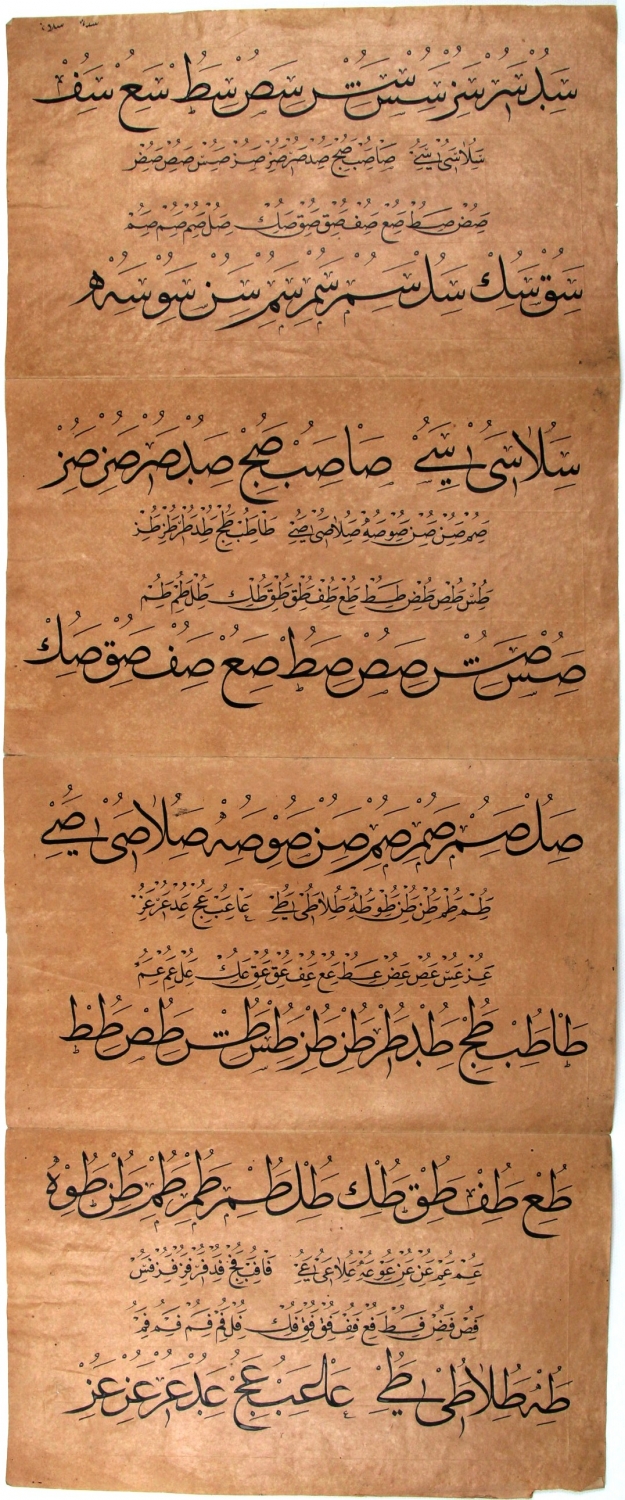 سد سر سز سس سس سص سط سع سف
سلا سى سے صا صب صج صد صر صز صز صس صص صض
صض صط صع صف صق صق صك صل صم صم صم
سق سك سل سم سم سم سن سو سه
سلا سى سے صا صب صج صد صر صز صز
صم صن صن صو صه صلا صى صے طا طب طج طد طر طز طز
طس طص طض طط طع طف طق طق طك طل طم طم
صس صس صص صط صع صف صق صك
صل صم صم صم صن صو صه صلا صى صے
طم طم طن طن طو طه طلا طى طے عا عب عج عد عر عز
عز عس عص عض عط عع عف عق عق عك عل عم عم
طا طب طج طد طر طز طز طس طس طص طط
طع طف طق طك طل طم طم طم طن طو ه
عم عم عن عن عو عه علا عى عے فا فب فج فد فر فز فز فس
فص فض فط فع فف فق فق فك فل فم فم فم فم
طه طلا طى طے عا عب عج عد عر عز عز